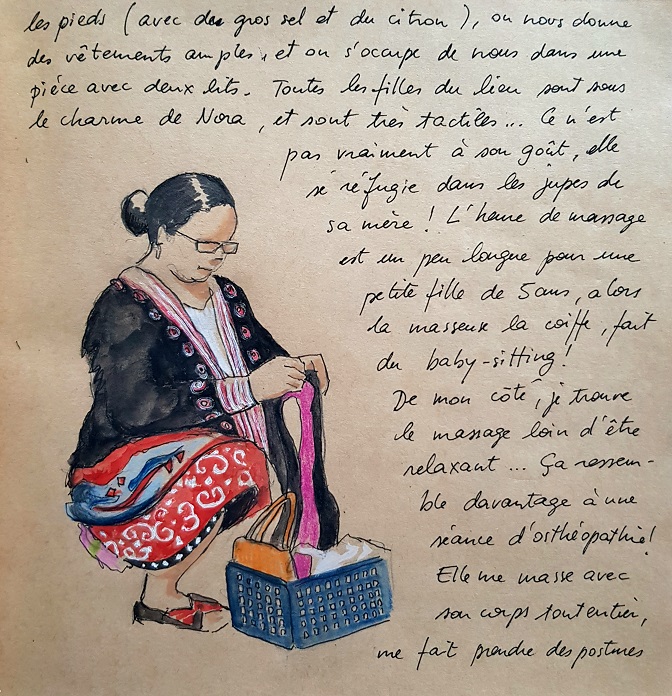 les pieds (avec du gros sel et du citron), on nous donne
des vêtements amples, et on s'occupe de nous dans une
pièce avec deux lits. Toutes les filles du lieu sont sous
le charme de Nora, et sont très tactiles... Ce n'est
pas vraiment à son goût, elle
se réfugie dans les jupes de
sa mère ! L'heure de massage
est un peu longue pour une
petite fille de 5 ans, alors
la masseuse la coiffe, fait
du baby-sitting !
De mon côté, je trouve
le massage loin d'être
relaxant... Ça ressem-
ble davantage à une
séance d'osthéopathie !
Elle me masse avec
son corps tout entier,
me fait prendre des postures